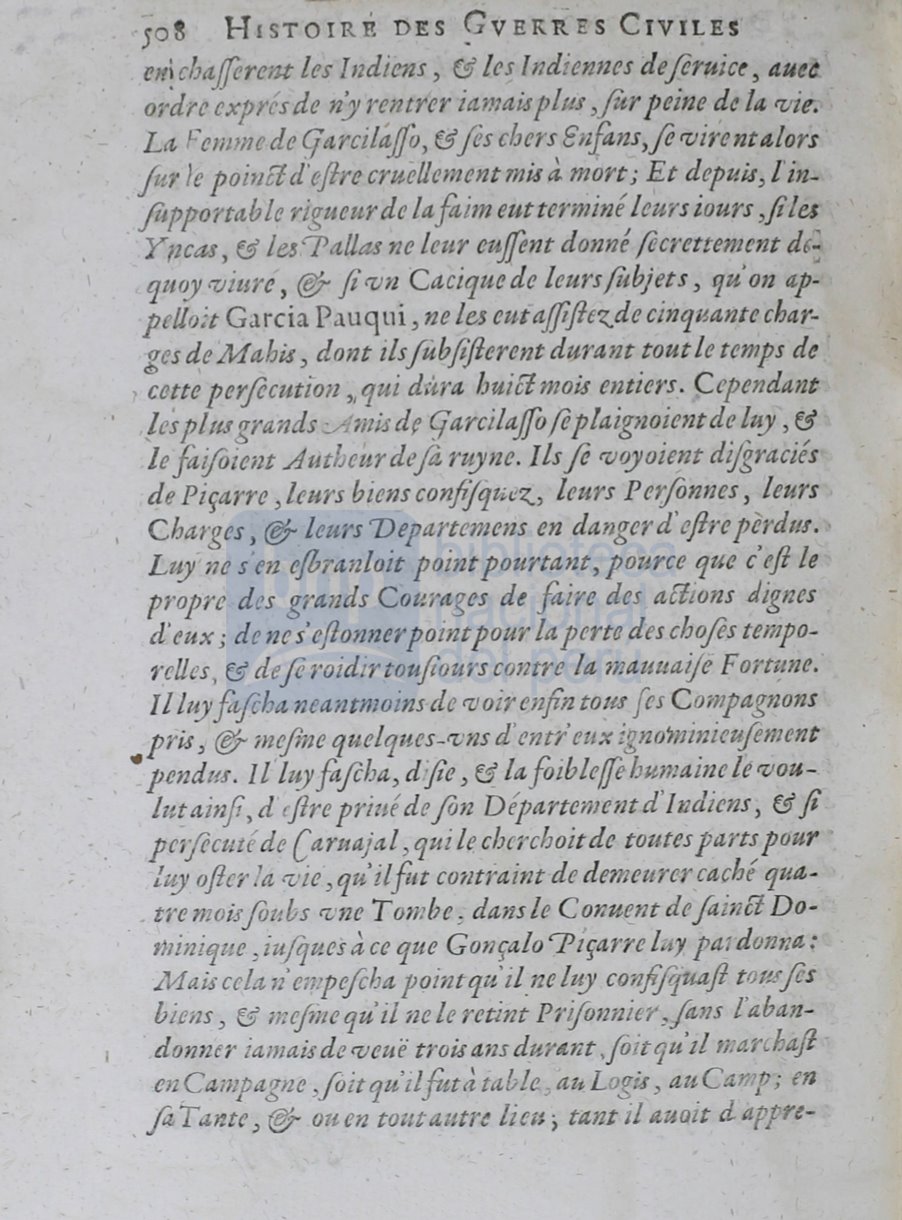 508 HISTOIRE DES GVERRES CIVILES
en chasserent les Indiens, & les Indiennes de seruice, auec
ordre exprés de n'y rentrer iamais plus, sur peine de la vie.
La Femme de Garcilasso, & ses chers Enfans, se virent alors
sur le poinct d'estre cruellement mis à mort; Et depuis, l'in-
supportable rigueur de la faim eut terminé leurs iours, si les
Yncas, & les Pallas ne leur eussent donné secrettement de-
quoy viure, & si vn Cacique de leurs subjets, qu'on ap-
pelloit Garcia Pauqui, ne les eut assistez de cinquante char-
ges de Mahis, dont ils subsisterent durant tout le temps de
cette persecution, qui dura huict mois entiers. Cependant
les plus grands Amis de Garcilasso se plaignoient de luy, &
le faisoient Autheur de sa ruyne. Ils se voyoient disgraciés
de Piçarre, leurs biens confisquez, leurs Personnes, leurs
Charges, & leurs Departemens en danger d'estre perdus.
Luy ne s'en esbranloit point pourtant, pource que c'est le
propre des grands Courages de faire des actions dignes
d'eux; de ne s'estonner point pour la perte des choses tempo-
relles, & de se roidir tousiours contre la mauuaise Fortune.
Il luy fascha neantmoins de voir enfin tous ses Compagnons
pris, & mesme quelques-vns d'entr'eux ignominieusement
pendus. Il luy fascha, disie, & la foiblesse humaine le vou-
lut ainsi, d'estre priué de son Département d'Indiens, & si
persecuté de Caruajal, qui le cherchoit de toutes parts pour
luy oster la vie, qu'il fut contraint de demeurer caché qua-
tre mois soubs vne Tombe, dans le Conuent de sainct Do-
minique, iusques à ce que Gonçalo Piçarre luy pardonna:
Mais cela n'empescha point qu'il ne luy confisquast tous ses
biens, & mesme qu'il ne le retint Prisonnier, sans l'aban-
donner iamais de veuë trois ans durant, soit qu'il marchast
en Campagne, soit qu'il fut à table, au Logis, au Camp; en
sa Tante, & ou en tout autre lieu; tant il auoit d'appre-
biblioteca
nacional
del perú